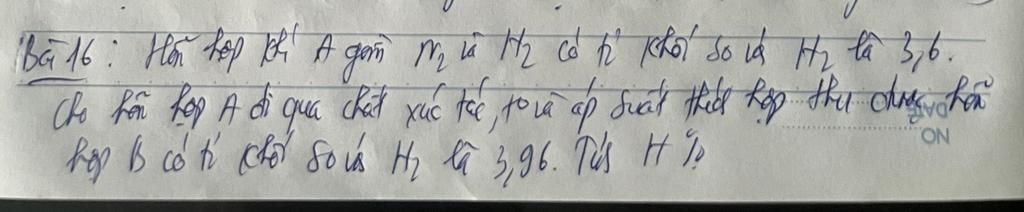 Bài 16: Hỗn hợp khí A gồm N2 và H2 có tỉ khối so với H2 là 3,6.
Cho hỗn hợp A đi qua chất xúc tác, to và áp suất thích hợp thu được hỗn
hợp B có tỉ khối so với H2 là 3,96. Tính H%
DATE
NO